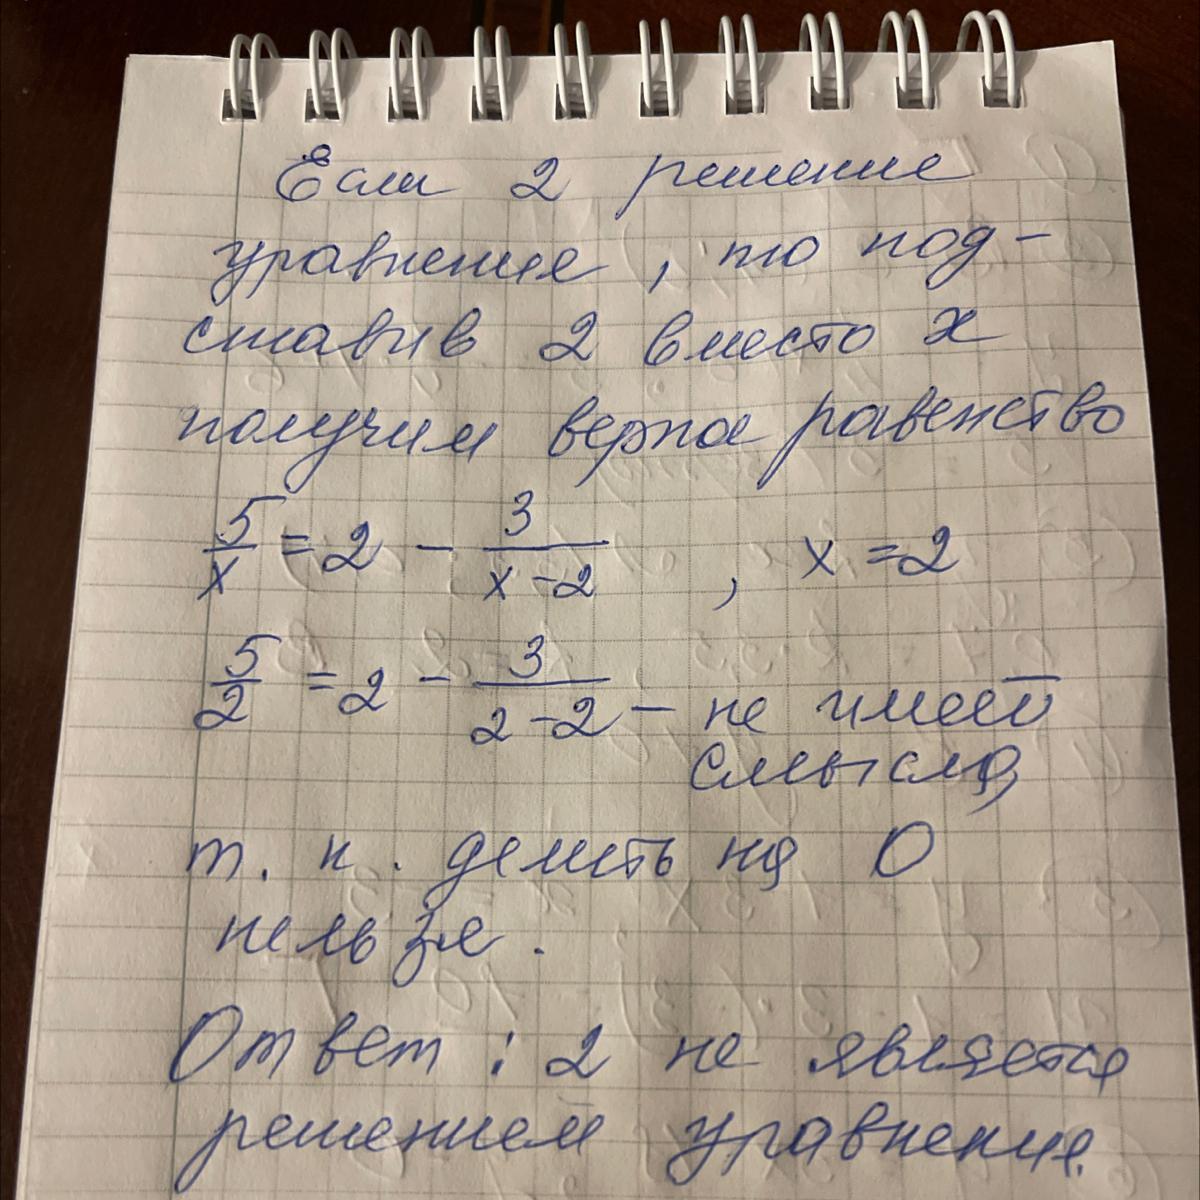 Если 2 решение
уравнения, то под-
ставив 2 вместо x
получим верное равенство
5/x = 2 - 3/(x-2), x = 2
5/2 = 2 - 3/(2-2) - не имеет
смысла,
т. к. делить на 0
нельзя.
Ответ: 2 не является
решением уравнения.